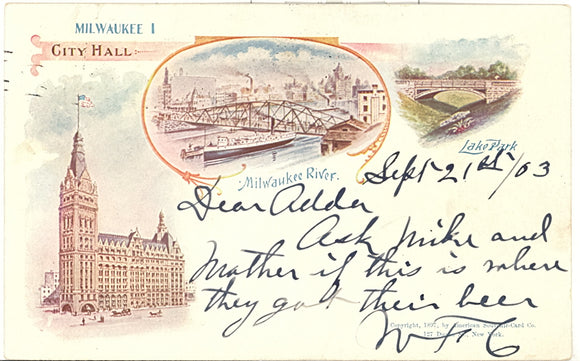 MILWAUKEE 1
CITY HALL
Milwaukee River.
Lake Park
Sept 21st/03
Dear Adda
Ask Mike and
Mother if this is where
they got their beer
Copyright, 1897, by American Souvenir-Card Co.
127 New York.